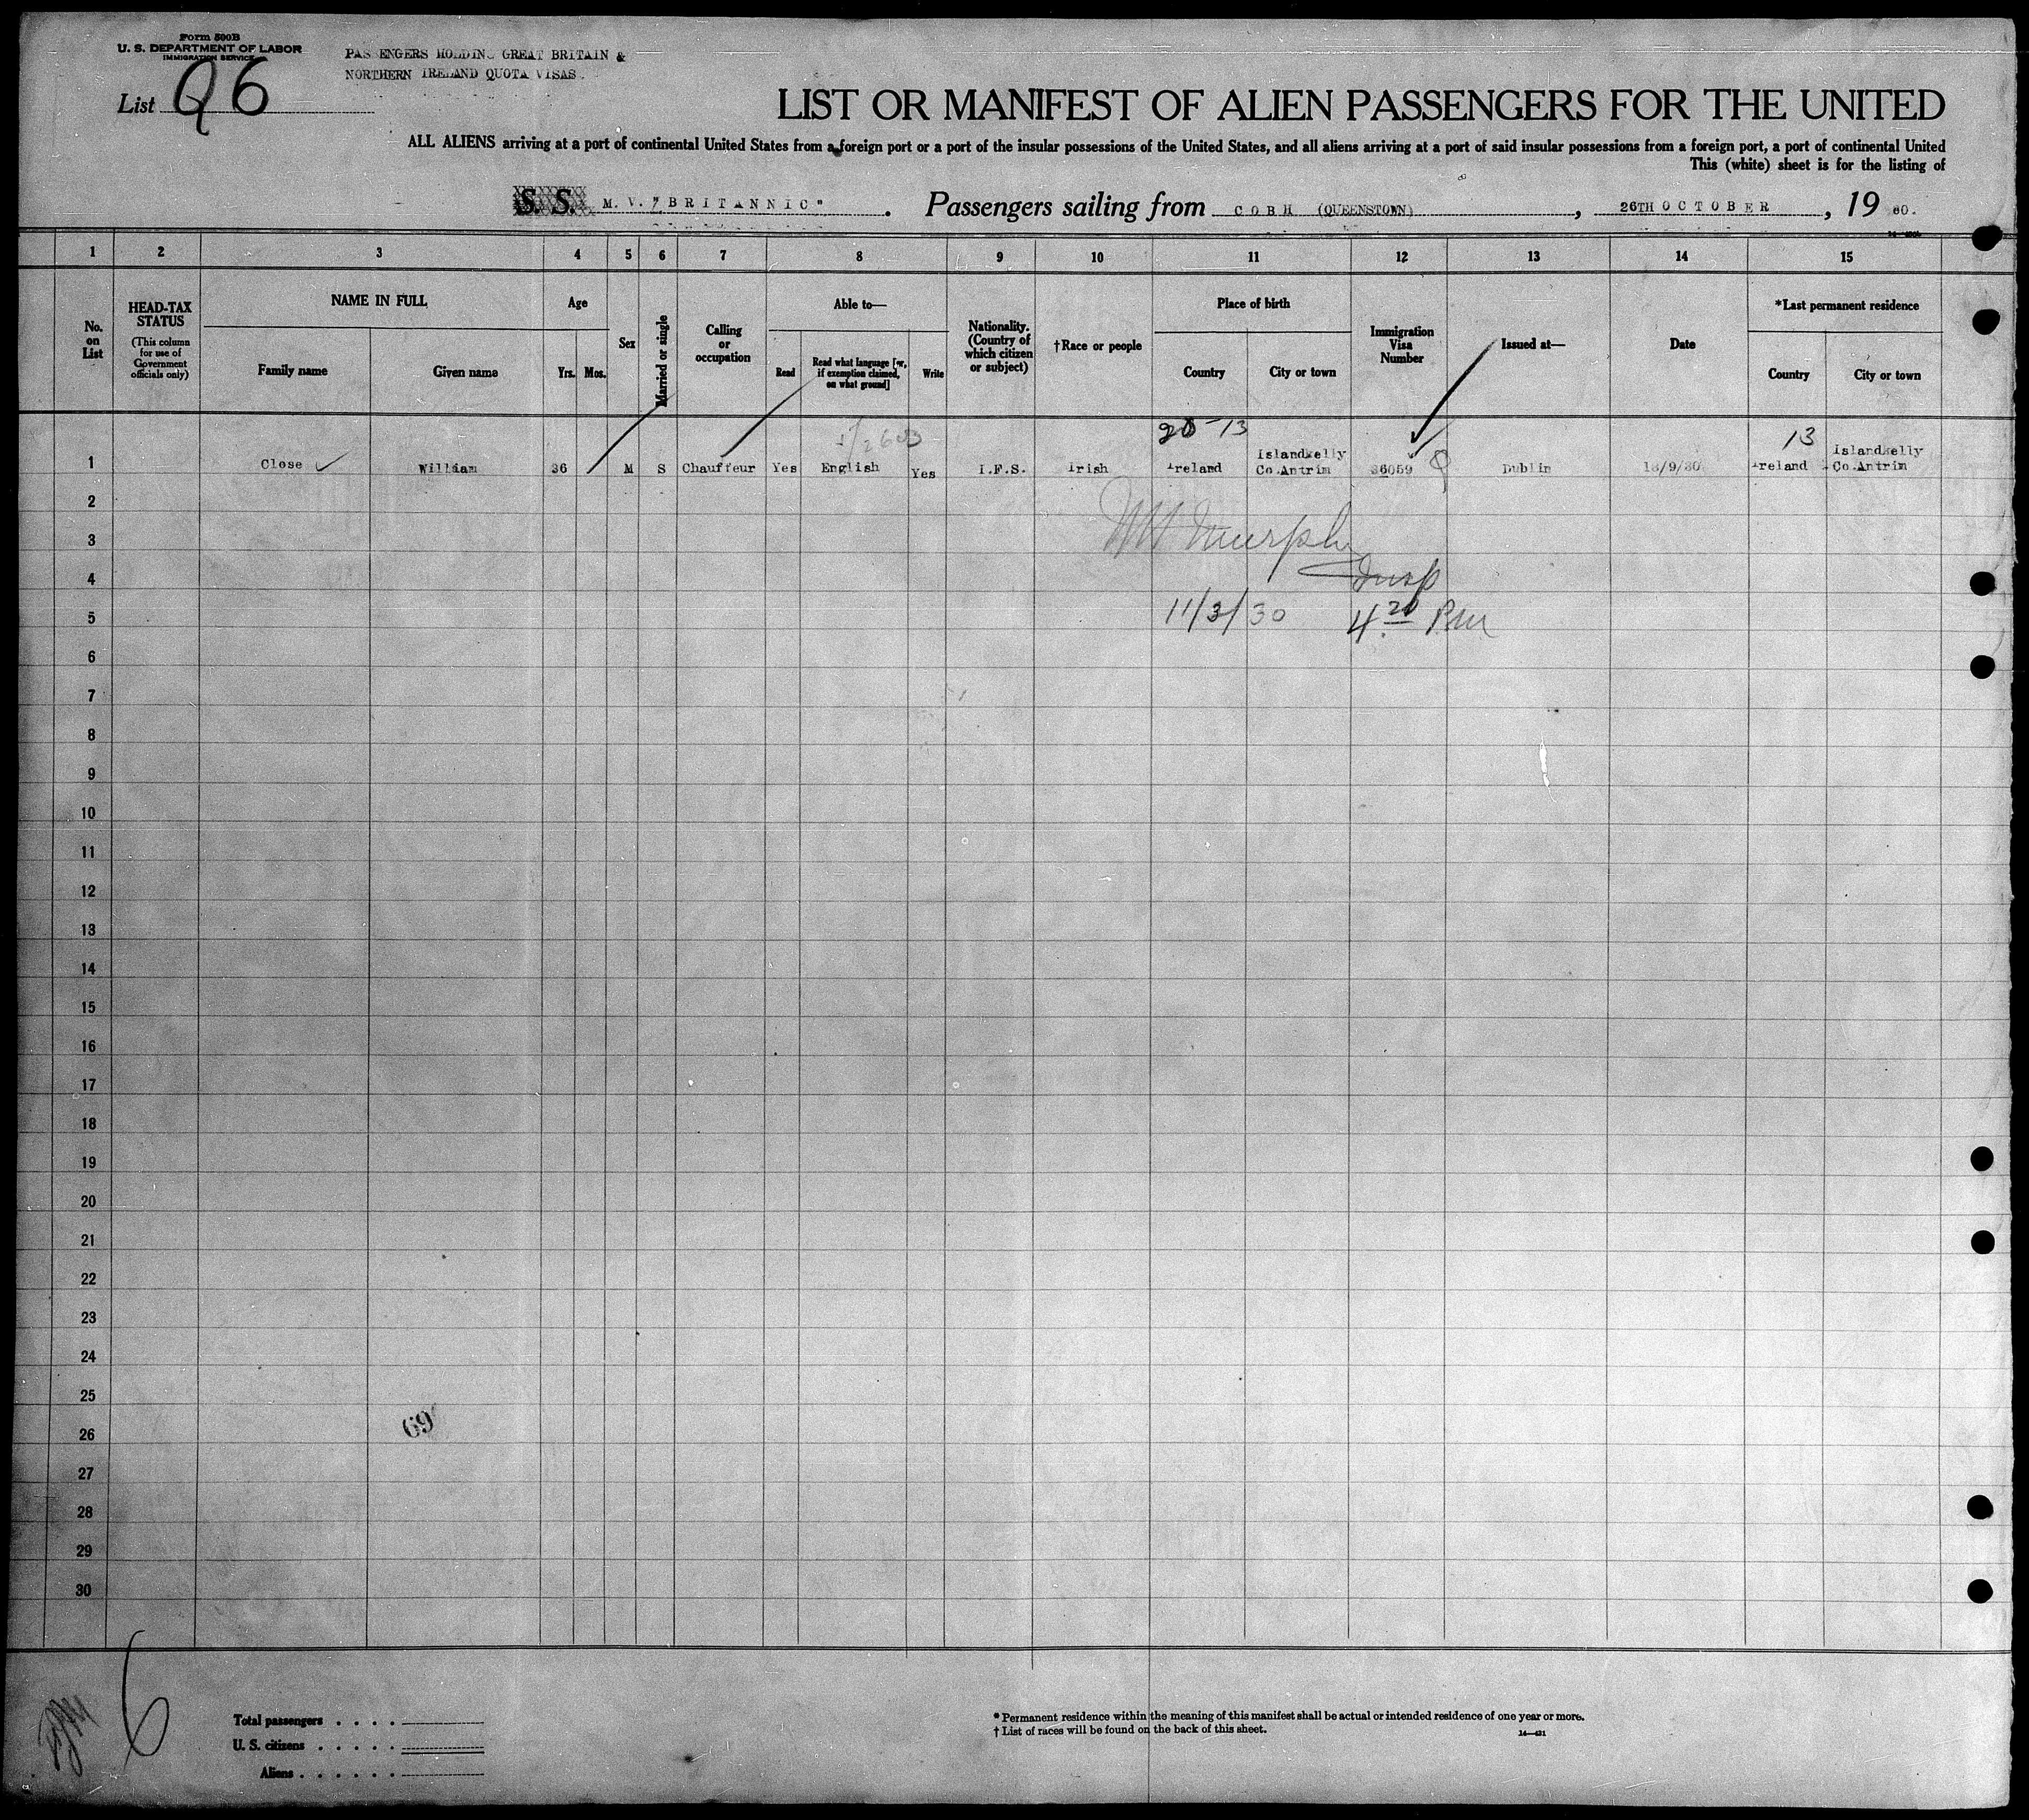 Form 500B
U. S. DEPARTMENT OF LABOR
IMMIGRATION SERVICE
PASSENGERS HOLDING GREAT BRITAIN &
NORTHERN IRELAND QUOTA VISAS.
List Q6
LIST OR MANIFEST OF ALIEN PASSENGERS FOR THE UNITED
ALL ALIENS arriving at a port of continental United States from a foreign port or a port of the insular possessions of the United States, and all aliens arriving at a port of said insular possessions from a foreign port, a port of continental United
This (white) sheet is for the listing of
S. S. M. V. "BRITANNIC". Passengers sailing from COBH (QUEENSTOWN), 26TH OCTOBER, 19 30.
1 2 3 4 5 6 7 8 9 10 11 12 13 14 15
No. on List
HEAD-TAX STATUS
(This column for use of Government officials only)
NAME IN FULL
Family name
Given name
Age
Yrs. Mos.
Sex
Married or single
Calling or occupation
Able to—
Read
Read what language [or, if exemption claimed, on what ground]
Write
Nationality. (Country of which citizen or subject)
†Race or people
Place of birth
Country
City or town
Immigration Visa Number
Issued at—
Date
*Last permanent residence
Country
City or town
20-13 13
1 Close William 36 M S Chauffeur Yes English Yes I.F.S. Irish Ireland Islandkelly Co.Antrim 36059 Dublin 18/9/30 Ireland Islandkelly Co.Antrim
2
3 Murphy
4 Insp
5 11/3/30 4.20 Pm
6
7
8
9
10
11
12
13
14
15
16
17
18
19
20
21
22
23
24
25
26 69
27
28
29
30
6
Total passengers . . . .
U. S. citizens . . . . .
Aliens . . . . . .
* Permanent residence within the meaning of this manifest shall be actual or intended residence of one year or more.
† List of races will be found on the back of this sheet.
14—421